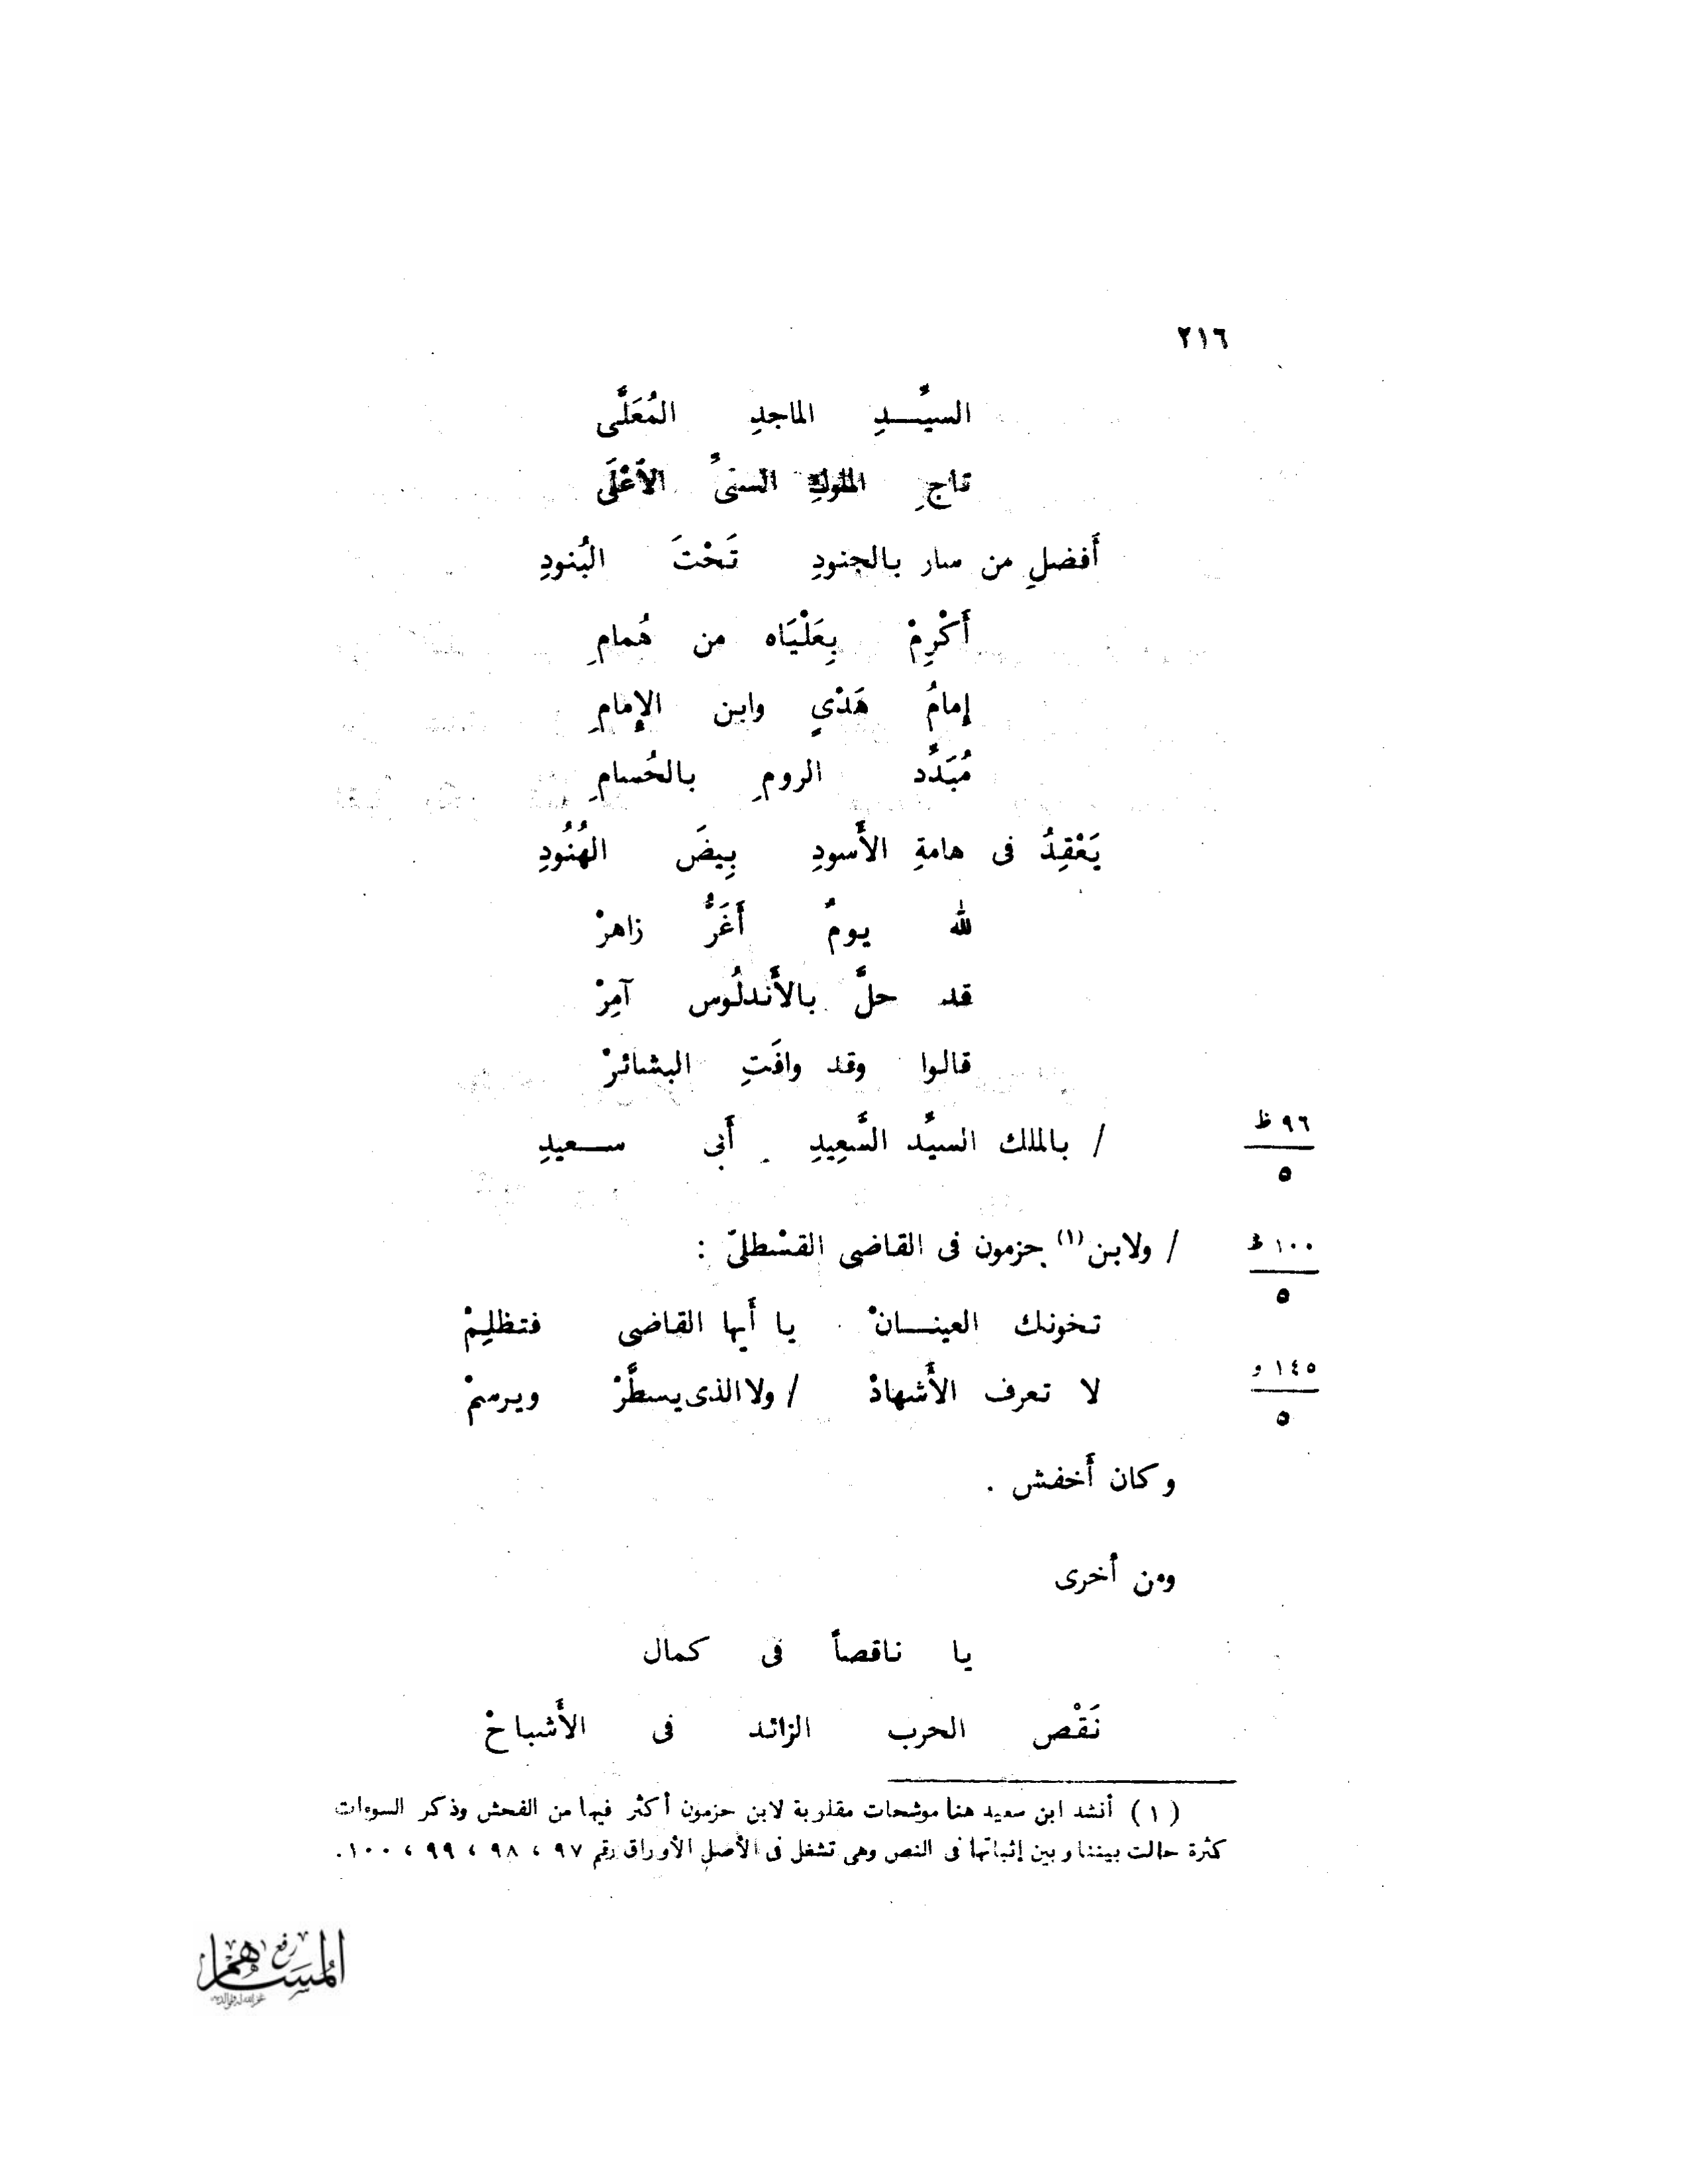 ٢١٦
السيِّـــدِ الماجدِ المُعَلَّى
تاجِ الملوكِ السنىِّ الأَعْلَى
أَفضلِ من سار بالجنودِ تَحْتَ البُنودِ
أَكْرِمْ بِعَلْيَاه من هُمامِ
إمامُ هَدْيٍ وابن الإمامِ
مُبَدِّد الرومِ بالحُسامِ
يَعْقِدُ فى هامةِ الأَسودِ بِيضَ الهُنُودِ
لله يومٌ أَغَرُّ زاهرْ
قد حلَّ بالأَندلُوس آمِرْ
قالوا وقد وافَتِ البشائرْ
٩٦ ظ / بالملك السيِّد السَّعِيدِ أَبى ســـعيدِ
٥
١٠٠ ظ / ولابن (١) حزمون فى القاضى القسْطلىّ :
٥
تخونك العينـــانْ يا أَيها القاضى فتظلِمْ
١٤٥ و لا تعرف الأَشهادْ / ولا الذى يسطَّرْ ويرسمْ
٥
وكان أَخفش .
ومن أخرى
يا ناقصاً فى كمال
نَقْص الحرب الزائد فى الأَشباحْ
(١) أنشد ابن سعيد هنا موشحات مقلوبة لابن حزمون أكثر فيها من الفحش وذكر السوءات
كثرة حالت بيننا وبين إثباتها فى النص وهى تشغل فى الأصل الأوراق رقم ٩٧ ، ٩٨ ، ٩٩ ، ١٠٠ .
رفع المساهم